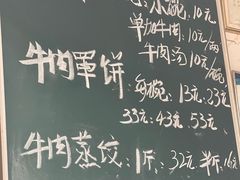 小碗:10元
单加牛肉:10元/两
牛肉汤10元/碗
牛肉罩饼:每碗:13元.23元
33元:43元.53元.
牛肉蒸饺:1斤:32元半斤:16元